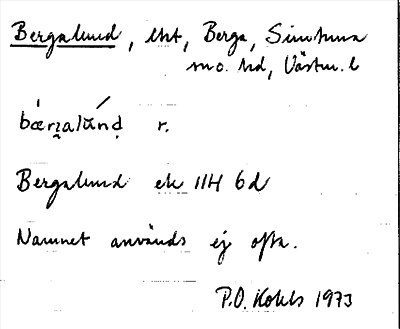 Bergalund, lht, Berga, Simtuna
sn o. hd, Västm. l
bæ̀rɟalúnd r.
Bergalund ek 11H 6d
Namnet används ej ofta.
P.O. 1973